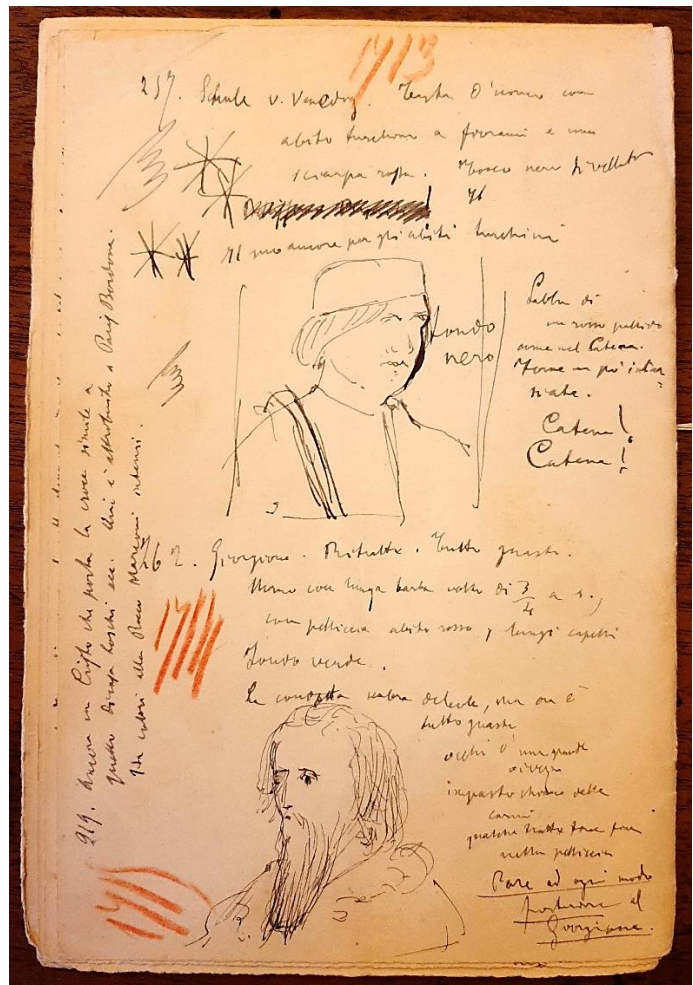 1713
257. Schule v. Venedig. Testa d'uomo con
abito turchino a e una
sciarpa rossa. Tocco nero di velluto
Il
Il suo ancora per gli abiti turchini
fondo
nero
Labbra di
un rosso pallido
come nel Catena.
Forme un po'
Catena!
Catena!
262. Giorgione. Ritratto. Tutto guasto.
Uomo con lunga barba volto di 3/4 a s.,
con pelliccia abito rosso, lunghi capelli
Fondo verde.
La condotta sembra debole, ma ora è
tutto guasto
occhi d'una grande
impasto delle
carni
qualche tratto fora fora
nella pelliccia
Pare ad ogni modo
posteriore al
Giorgione.
919. Ancora un Cristo che porta la croce simile a
questo boschi ecc. Qui è attribuito a Paris Bordone.
Ha colori alla Rocco Marconi intensi.